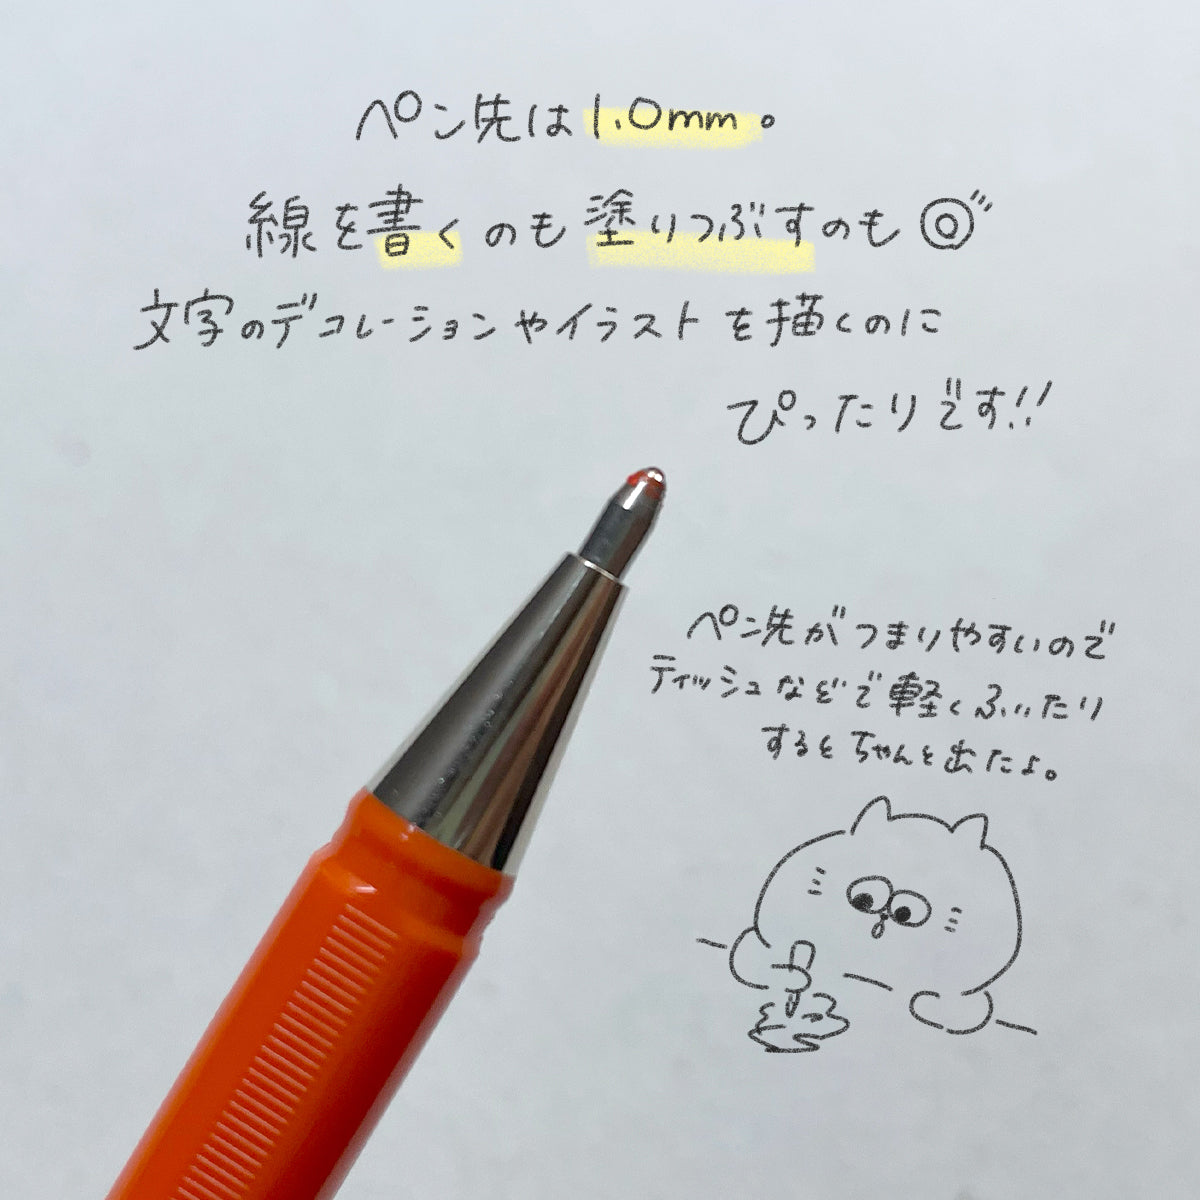 ペン先は1.0mm。
線を書くのも塗りつぶすのも◎
文字のデコレーションやイラストを描くのに
ぴったりです!!
ペン先がつまりやすいので
ティッシュなどで軽くふいたり
するとちゃんと出たよ。